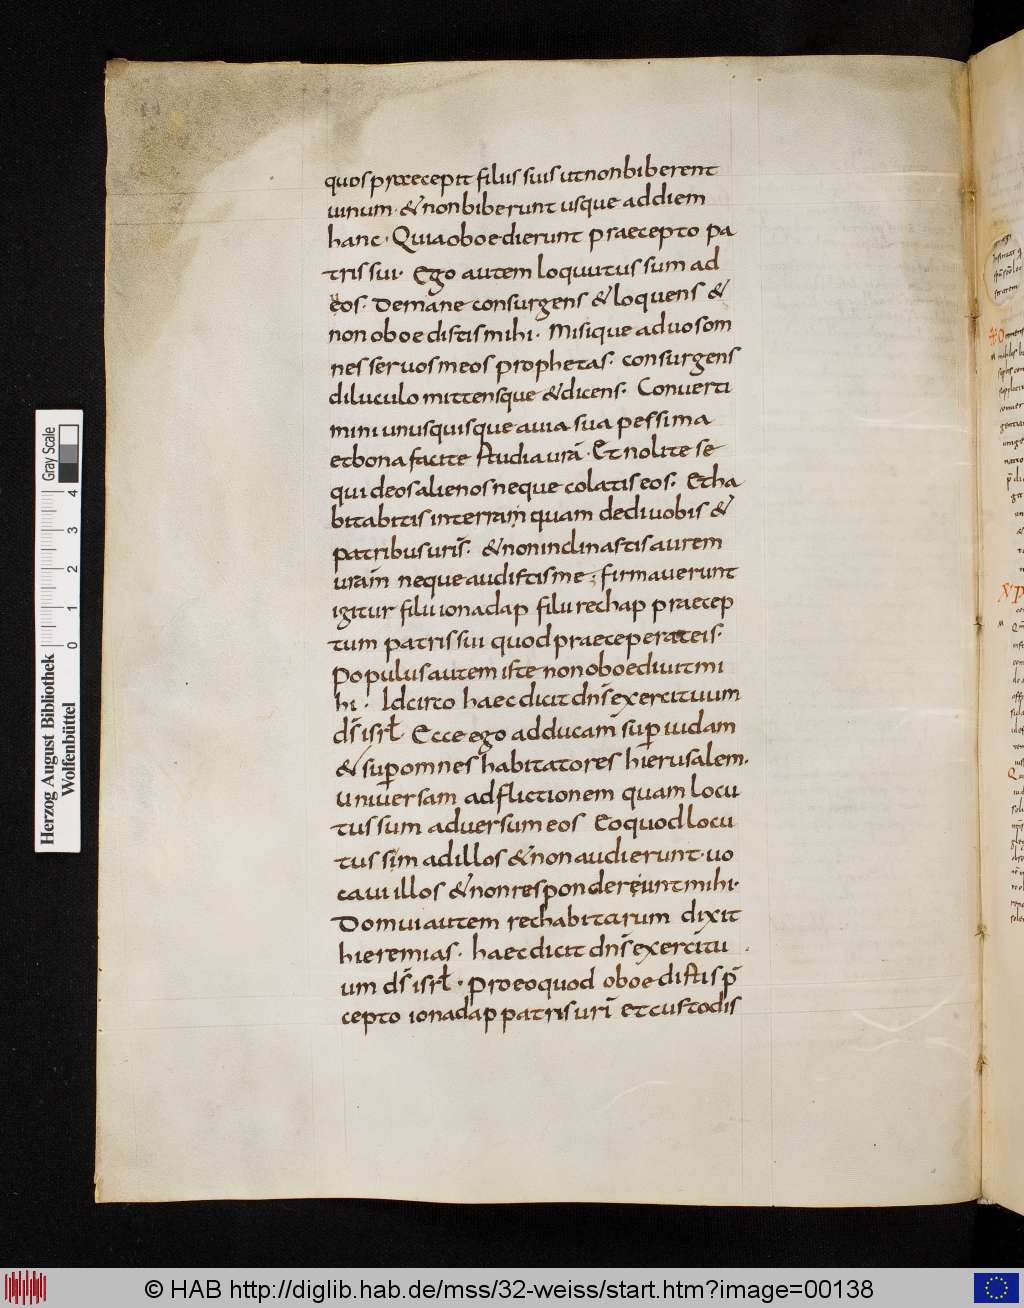 quos praecepit filiis suis ut non biberent
uinum · & non biberunt usque ad diem
hanc · Quia oboedierunt praecepto pa
tris sui · Ego autem loquutus sum ad
eos · De mane consurgens & loquens &
non oboedistis mihi · Misique ad uos om
nes seruos meos prophetas · consurgens
diluculo mittensque & dicens · Conuerti
mini unusquisque a uia sua pessima
et bona facite studia urā · Et nolite se
qui deos alienos neque colatis eos · Et ha
bitabitis in terram quam dedi uobis &
patribus uris̄ · & non inclinastis aurem
urām neque audistis me · firmauerunt
igitur filii ionadap filii rechap praecep
tum patris sui quod praeceperat eis ·
Populus autem iste non oboediuit mi
hi · Idcirco haec dicit dn̄s exercituum
ds̄ isrł · Ecce ego adducam sup iudam
& sup omnes habitatores hierusalem ·
Uniuersam adflictionem quam locu
tus sum aduersum eos Eo quod locu
tus sim ad illos & non audierunt · uo
caui illos & non responderunt mihi ·
Domui autem rechabitarum dixit
hieremias · haec dicit dn̄s exercitu
um ds̄ isrł · Pro eo quod oboedistis p̄
cepto ionadap patris urī et custodis
Herzog August Bibliothek
Wolfenbüttel
Gray Scale
0 1 2 3 4
© HAB http://diglib.hab.de/mss/32-weiss/start.htm?image=00138